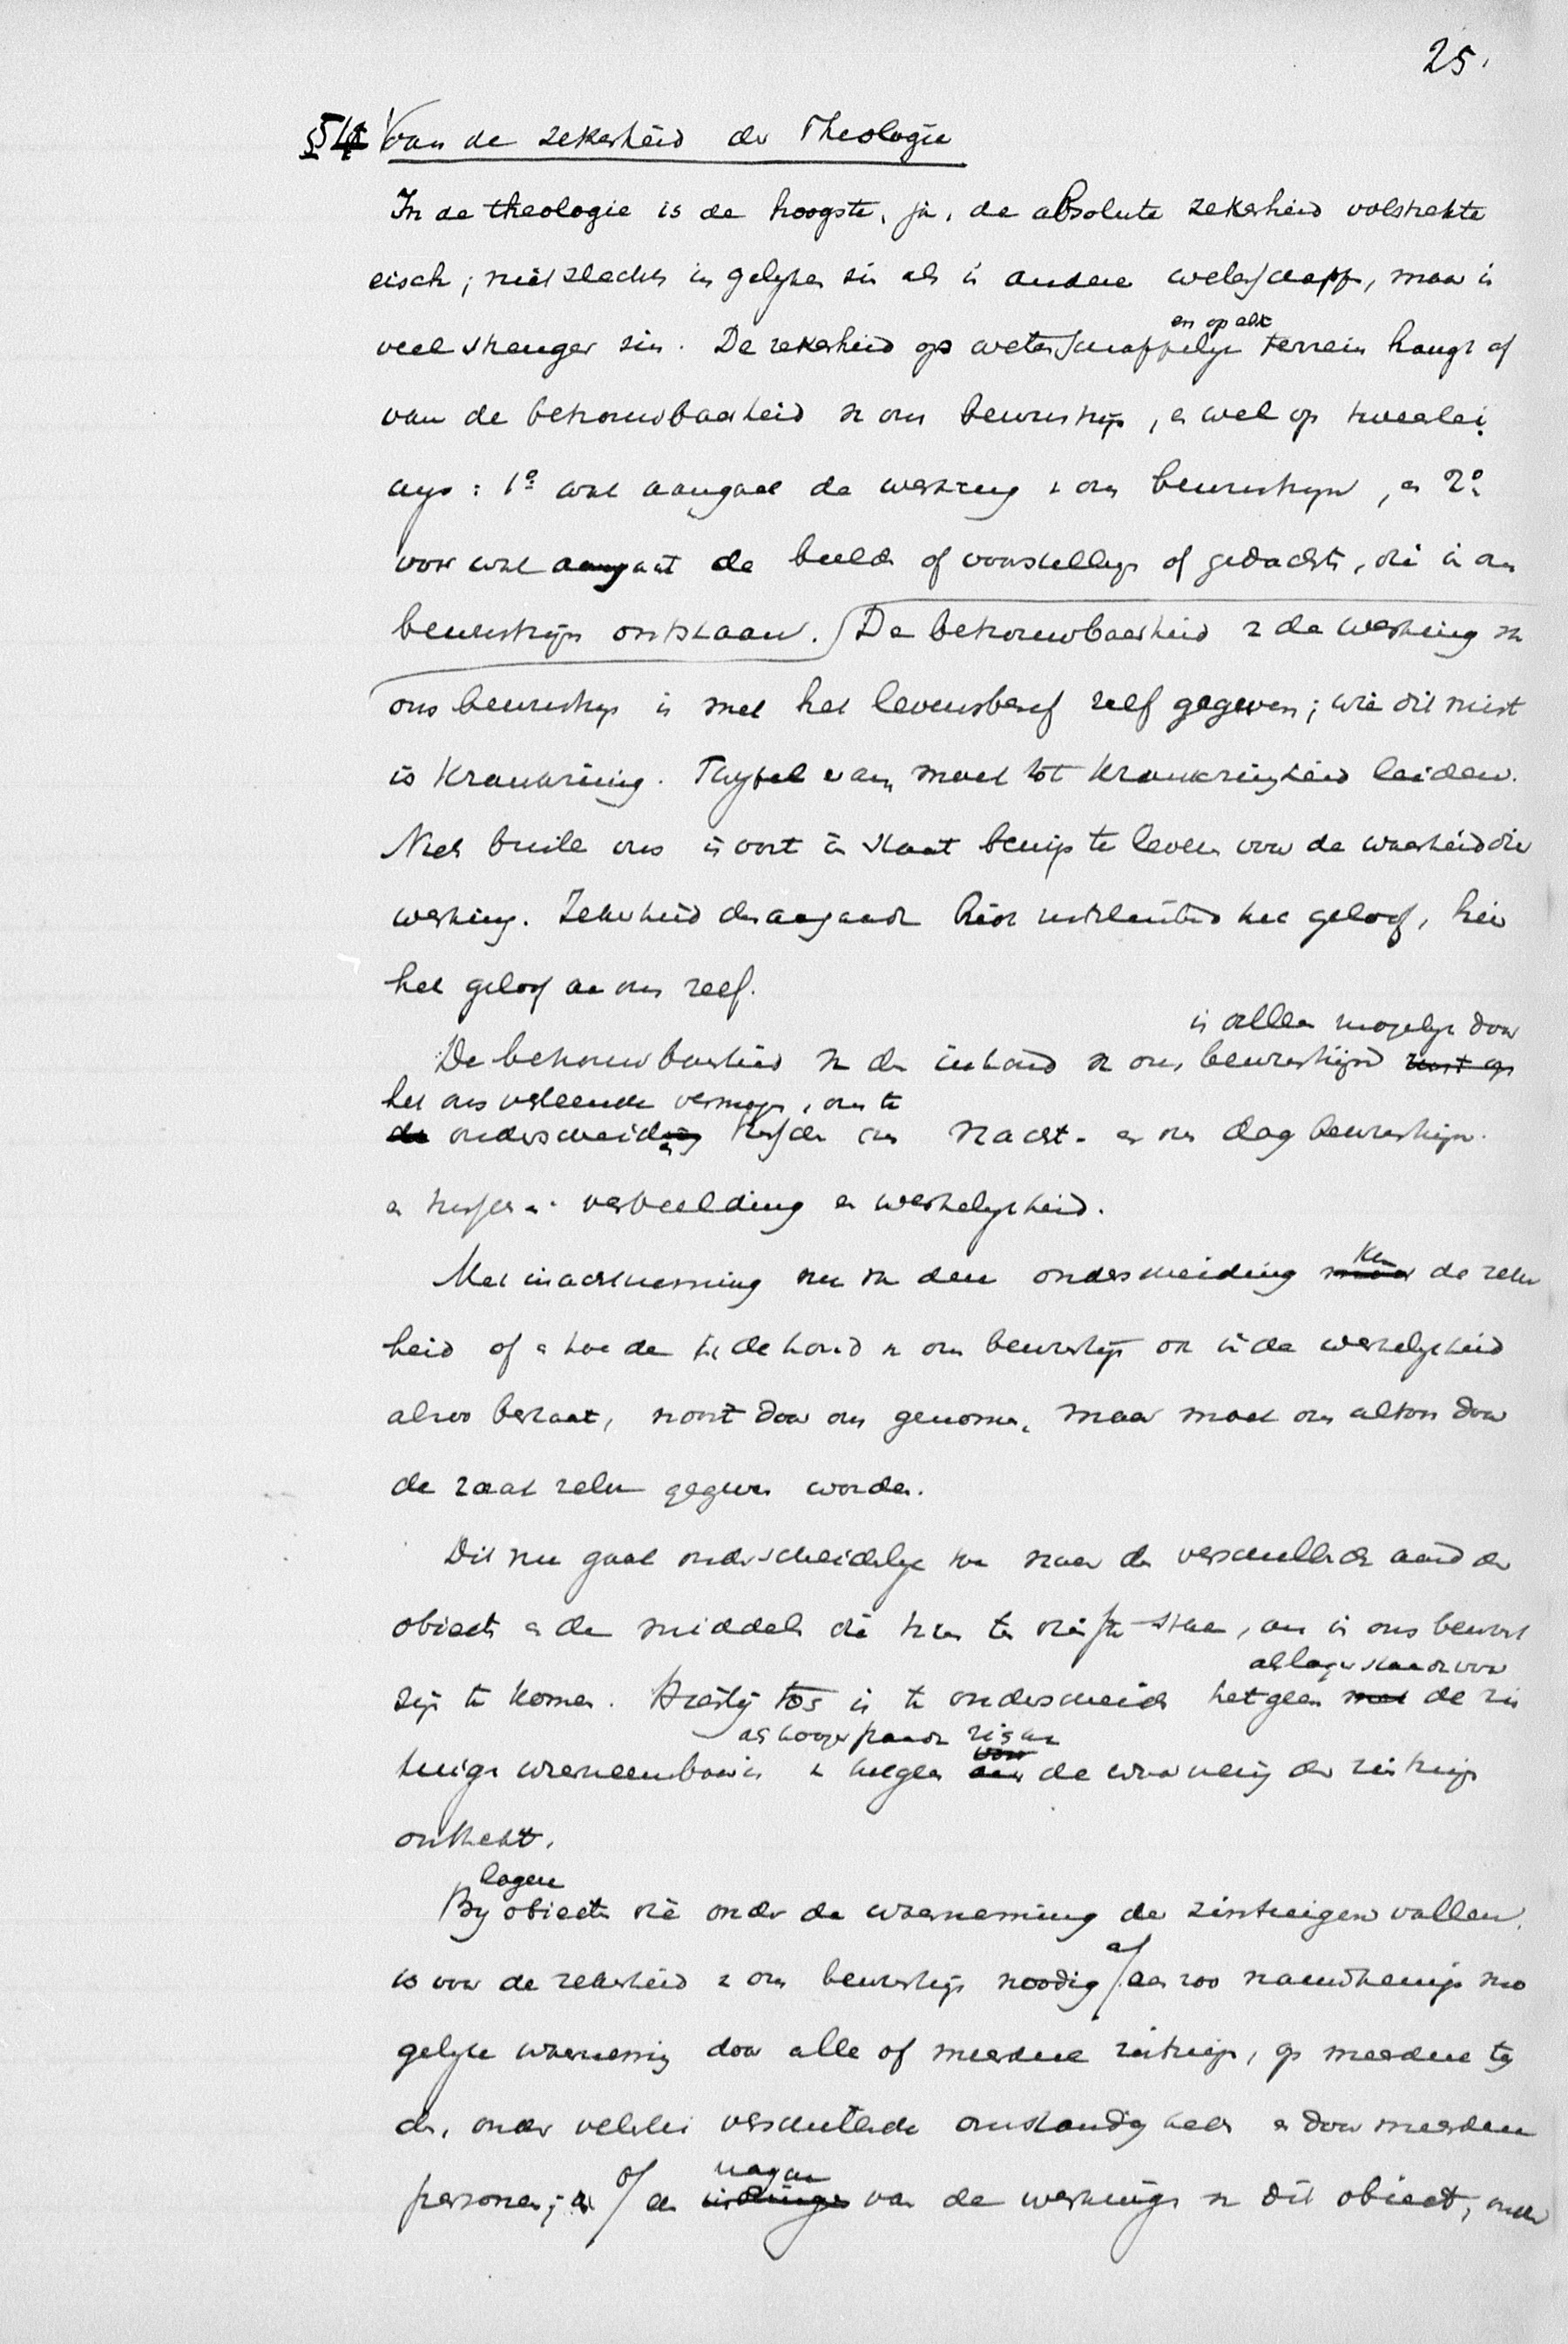 25.
§ 4 Van de zekerheid der Theologie
In de theologie is de hoogste, ja, de absolute zekerheid volstrekte
eisch; niet slechts in gelijken zin als in andere wetenschappen, maar in
en op elk
veel strenger zin. De zekerheid op wetenschappelijk terrein hangt af
van de betrouwbaarheid van ons bewustzijn, en wel op tweeërlei
wijs: 1º wat aangaat de werking van ons bewustzijn, en 2º
voor wat aangaat de beelden of voorstellingen of gedachten, die in ons
bewustzijn ontstaan. De betrouwbaarheid van de werking van
ons bewustzijn is met het levensbesef zelf gegeven; wie dit mist
is krankzinnig. Twijfel eraan moet tot krankzinnigheid leiden.
Niets buiten ons is ooit in staat bewijs te leveren voor de waarheid dier
werking. Zekerheid dienaangaande biedt uitsluitend het geloof, hier
het geloof aan ons zelf.
is alleen mogelijk door
De betrouwbaarheid van den inhoud van ons bewustzijn rust op
het ons verleende vermogen, om te
de onderscheiden tusschen ons nacht- en ons dagbewustzijn
en tusschen verbeelding en werkelijkheid.
Met inachtneming nu van deze onderscheiding kan de zeker
heid of en hoe de inhoud van ons bewustzijn ook in de werkelijkheid
alzoo bestaat, nooit door ons genomen, maar moet ons altoos door
de zaak zelve gegeven worden.
Dit nu gaat onderscheidenlijk toe naar den verschillenden aard der
objecten en de middelen die hun ten dienste staan, om in ons bewust
als lager staande voor
zijn te komen. Hierbij is te onderscheiden hetgeen met de zin
als hooger staande zich aan
tuigen waarneembaar is en hetgeen aan de waarneming der zintuigen
onttrekt.
lagere
Bij objecten die onder de waarneming der zintuigen vallen
is voor de zekerheid van ons bewustzijn noodig of een zoo nauwkeurig mo
gelijke waarneming door alle of meerdere zintuigen, op meerdere tij
den, onder velerlei verschillende omstandigheden en door meerdere
nagaan
personen; of een van de werkingen van dit object, onder